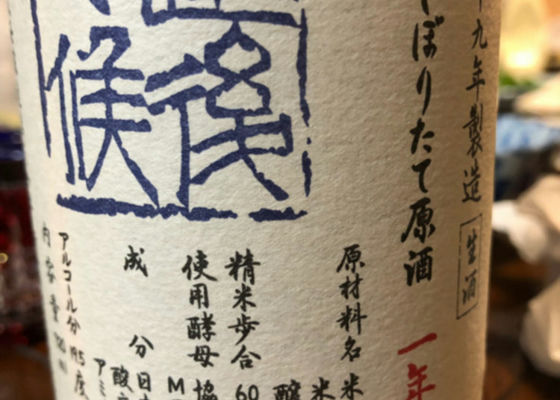 九年製造
生酒
ぼりたて原酒
一年
原材料名 米
米
精米歩合 60
使用酵母 協
M
成分 日
酸
アミ
アルコール分 19.5度
内容量 720ml
後
候